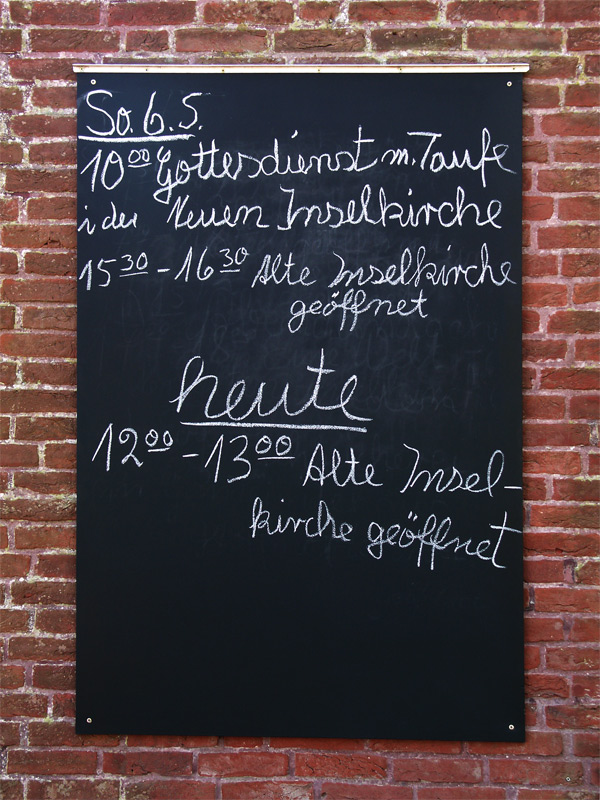 So. 6. 5.
10 00 Gottesdienst m. Taufe
i der Neuen Inselkirche
15 30 - 16 30 Alte Inselkirche
geöffnet
heute
12 00 - 13 00 Alte Insel-
kirche geöffnet